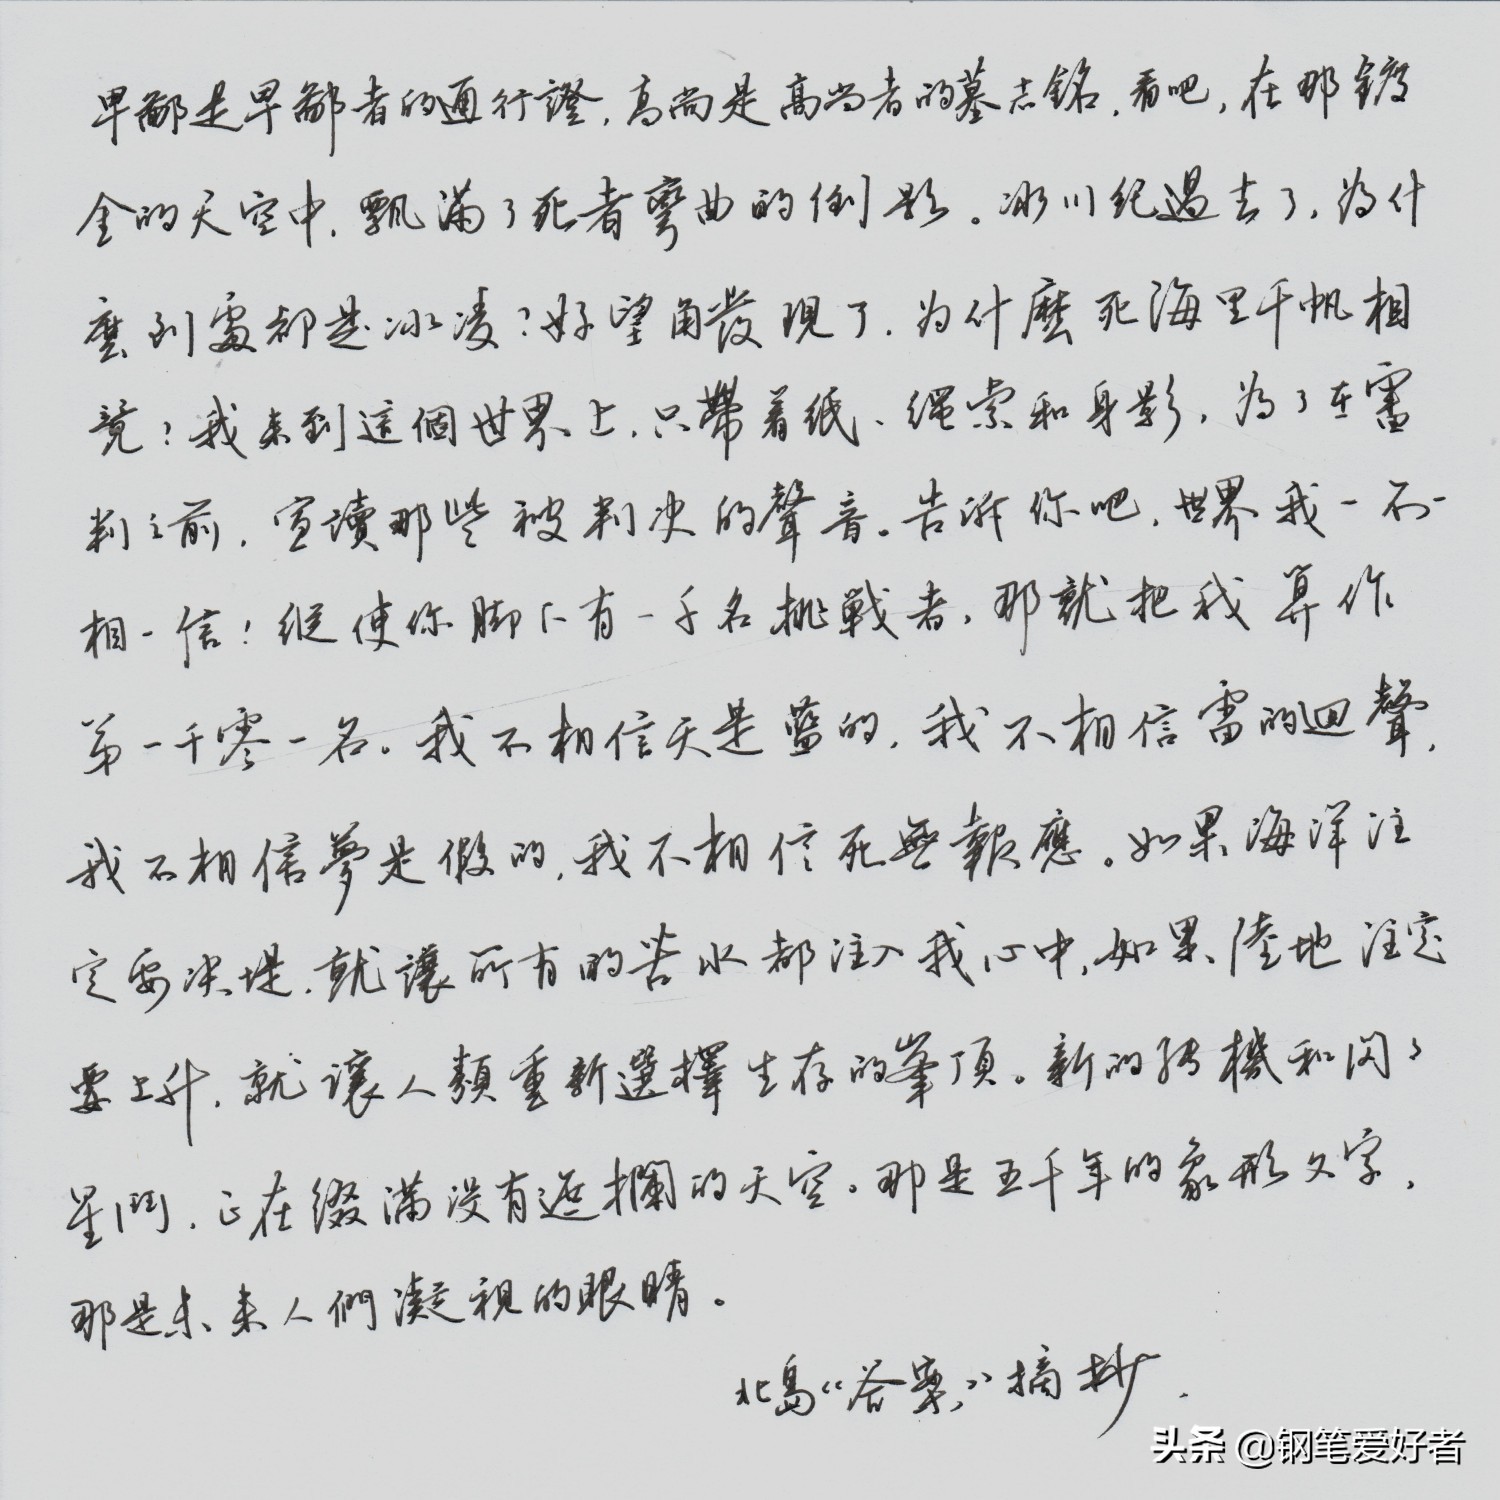 卑鄙是卑鄙者的通行證，高尚是高尚者的墓志銘，看吧，在那鍍
金的天空中，飄滿了死者彎曲的倒影。冰川紀過去了，為什
麼到處都是冰凌？好望角發現了，為什麼死海里千帆相
競？我来到這個世界上，只帶着纸、繩索和身影，為了在審
判之前，宣讀那些被判决的聲音。告訴你吧，世界我一不一
相一信！縱使你脚下有一千名挑戰者，那就把我算作
第一千零一名。我不相信天是藍的，我不相信雷的迴聲，
我不相信夢是假的，我不相信死無報應。如果海洋注
定要决堤，就讓所有的苦水都注入我心中，如果陸地注定
要上升，就讓人類重新選擇生存的峯頂。新的转機和闪闪
星鬥，正在缀滿没有遮攔的天空。那是五千年的象形文字，
那是未来人們凝視的眼睛。
北島《答案》摘抄．
头条 @钢笔爱好者